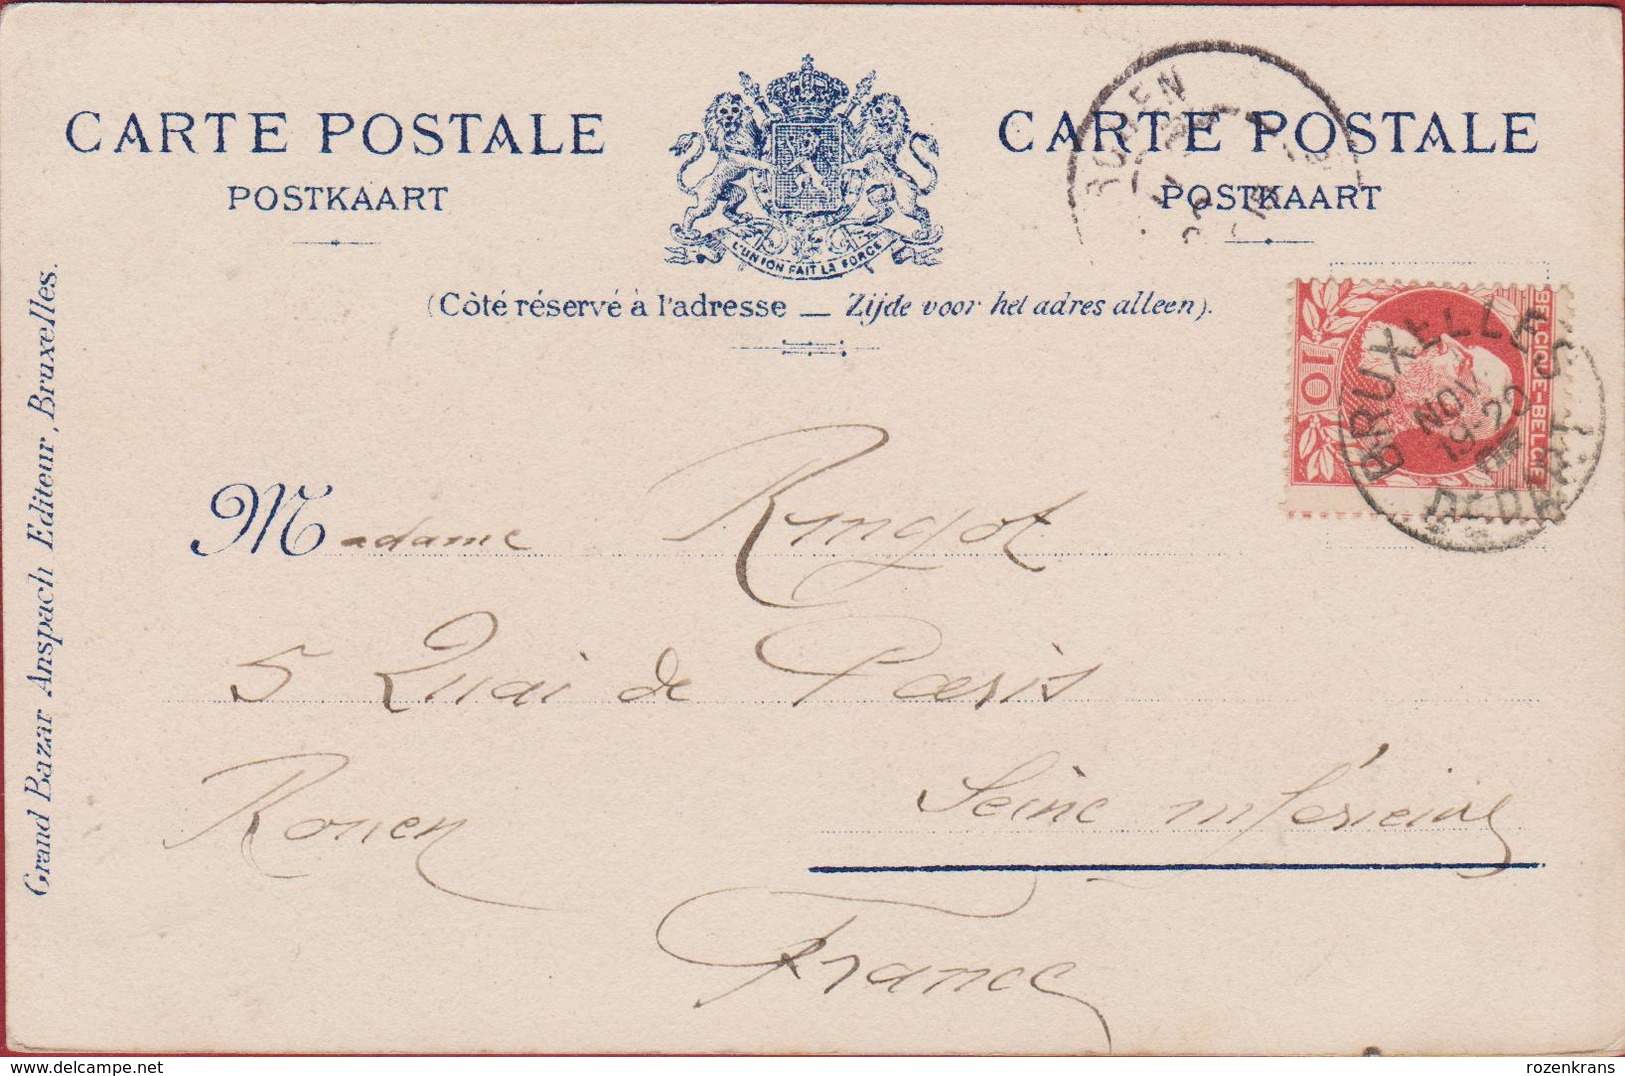 CARTE POSTALE
POSTKAART
L'UNION FAIT LA FORCE
CARTE POSTALE
POSTKAART
ROUEN
(Côté réservé à l'adresse — Zijde voor het adres alleen).
BELGIQUE-BELGIË
10
BRUXELLES
NOV.
19-20
DEPART
Madame Ringot
5 Quai de Paris
Rouen
Seine inférieure
France
Grand Bazar Anspach Editeur, Bruxelles.
delcampe.net
rozenkrans